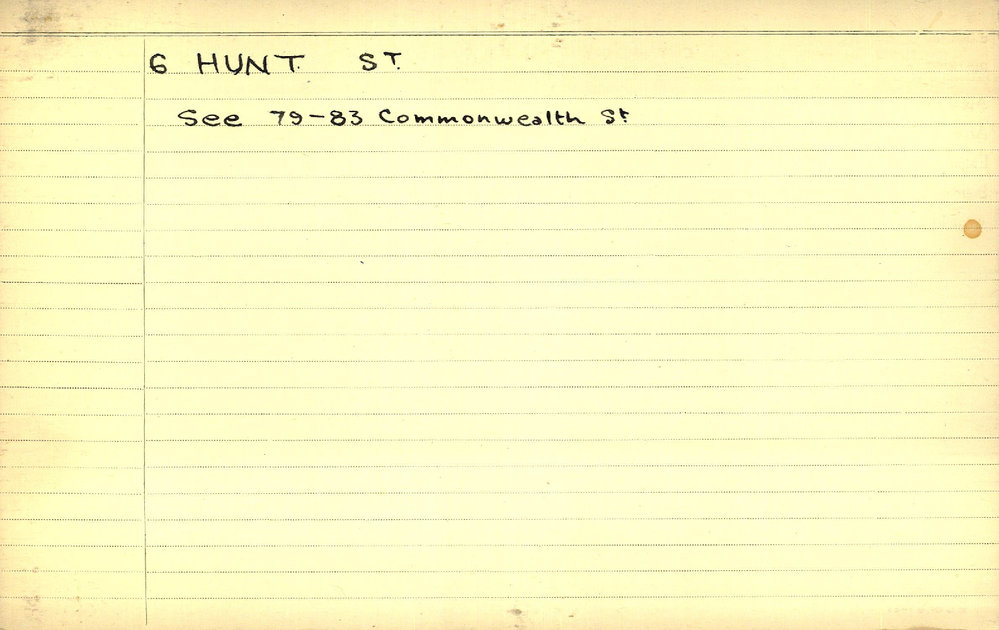 6 HUNT ST.
See 79-83 Commonwealth St